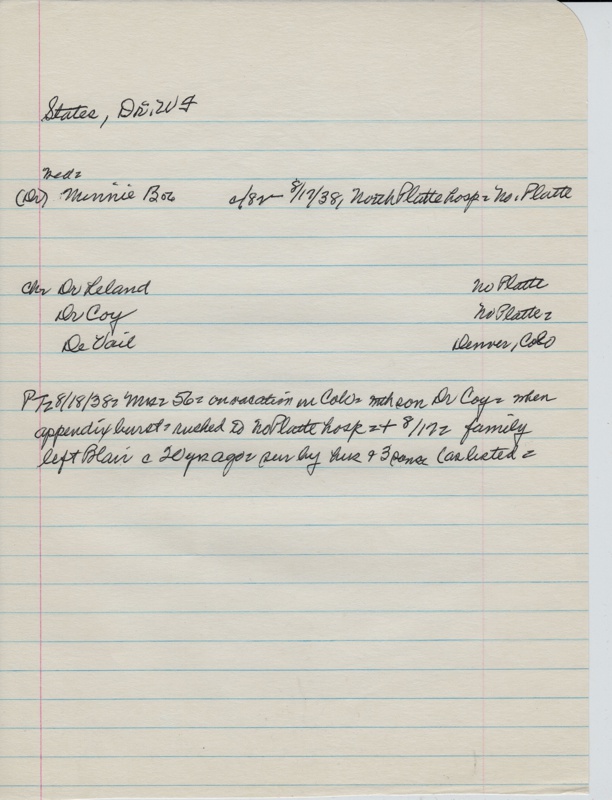 States, Dr. W F
med=
(Dr) Minnie Boe c/82 8/17/38, North Platte hosp = No. Platte
ch= Dr Leland No Platte
Dr Coy No Platte=
De Vail Denver, Colo
PT= 8/18/38= Mrs= 56= on vacation in Colo= with son Dr Coy= when
appendix burst= rushed to No Platte hosp =+ 8/17= family
left Blair c 20 yrs ago= sur by hus & 3 sons (as listed=